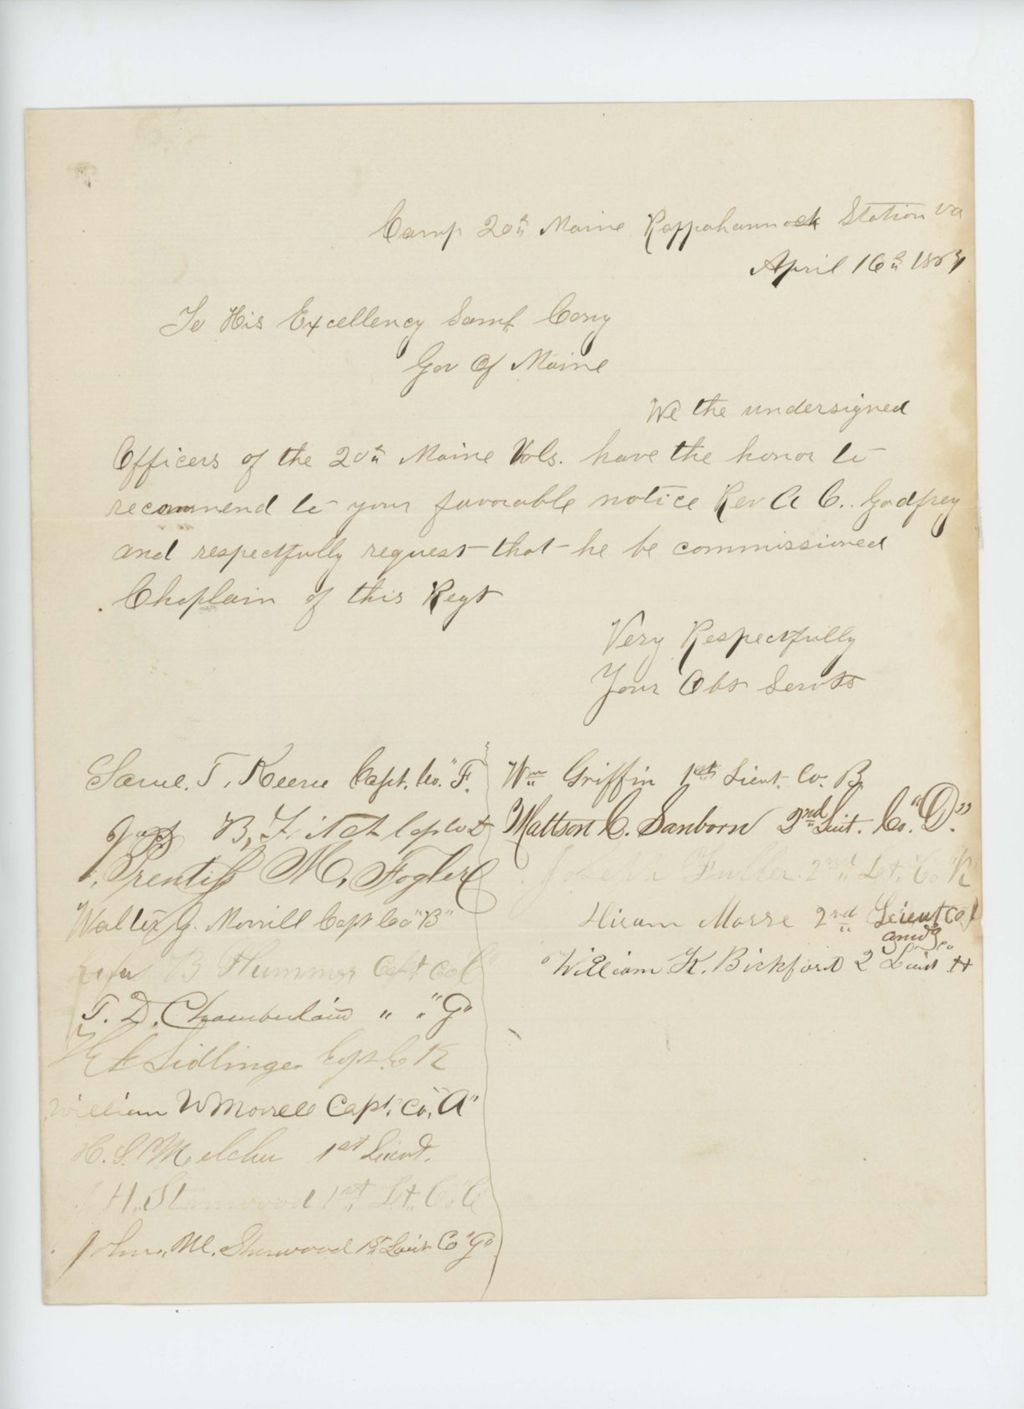 Camp 20th Maine Rappahannock Station Va
April 16th 1864
To His Excellency Saml Cony
Gov Of Maine
We the undersigned
Officers of the 20th Maine Vols. have the honor to
recommend to your favorable notice Rev A C. Godfrey
and respectfully request that he be commissioned
Chaplain of this Regt
Very Respectfully
Your Obt Servts
Saml. T. Keene Capt. Co. "F.
B. F. Fitch Capt Co D
Prentiss M. Fogler
Walter G. Morrill Capt Co "B"
B Plummer Capt Co C
T. D. Chamberlain " " "G"
Sidlinger Capt. Co K
William W Morrell Capt. Co. "A"
H. S. Melcher 1st Lieut.
H. Stanwood 1st Lt. Co C
John. M. Sherwood 1st Lieut Co "G"
Wm Griffin 1st Lieut. Co. B.
Mattson C. Sanborn 2nd Lieut. Co. "D."
Joseph Fuller 2nd Lt. Co K
Hiram Morse 2nd Lieut Co
William K. Bickford 2 Lieut H